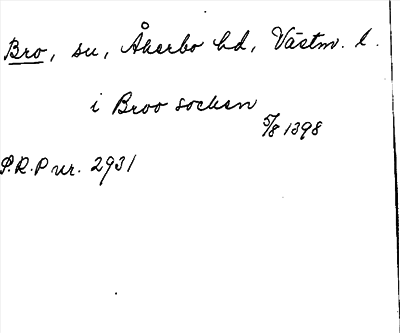 Bro, sn, Åkerbo hd, Västm. l.
i Broo socken
5/8 1398
S.R.P nr. 2931